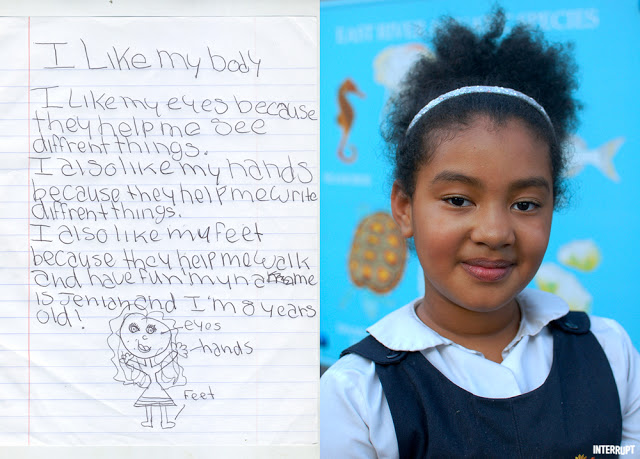 I Like my body
I Like my eyes because
they help me see
diffrent things.
I also like my hands
because they help me write
diffrent things.
I also like my feet
because they help me walk
and have fun my name
is Jeniah and I'm 8 years
old!
eyes
hands
Feet
EAST RIVER SPECIES
INTERRUPT